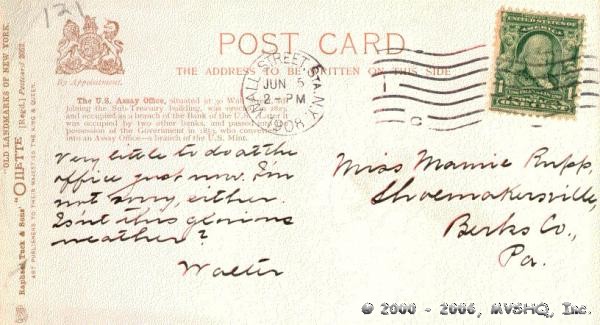 121
POST CARD
By Appointment.
THE ADDRESS TO BE WRITTEN ON THIS SIDE
The U.S. Assay Office, situated at 30 Wall
joining the Sub-Treasury building, was erected in 1823
and occupied as a branch of the Bank of the U.S. Later it
was occupied by two other banks, and passed
possession of the Government in 1853, who converted
into an Assay Office—a branch of the U.S. Mint.
"OLD LANDMARKS OF NEW YORK."
Raphael Tuck & Sons' "OILETTE" [Regd.] Postcard
ART PUBLISHERS TO THEIR MAJESTIES THE KING & QUEEN.
WALL STREET STA. N.Y.
JUN 5
2-PM
1908
UNITED STATES OF AMERICA
1
1
Very little to do at the
office just now. I'm
not sorry, either.
Isn't this glorious
weather?
Walter
Miss Mamie Rupp,
Shoemakersville,
Berks Co.,
Pa.
© 2000 - 2006, MVSHQ, Inc.